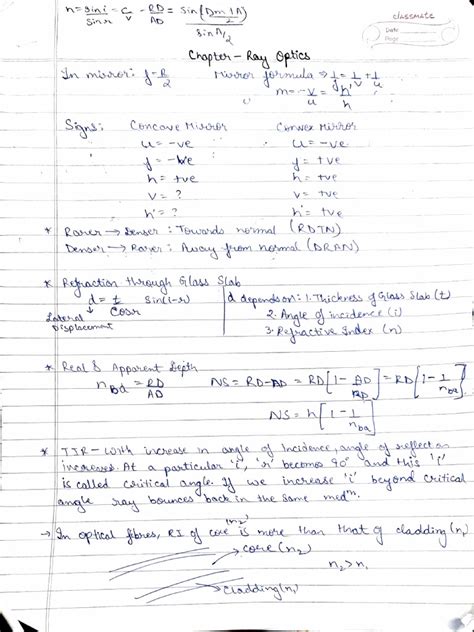 n = sin i / sin r = c / v = RD / AD = sin (Dm + A) / 2 / sin A/2
classmate
Date
Page
Chapter - Ray Optics
In mirror: f = R/2 Mirror formula ⇒ 1/f = 1/v + 1/u
m = -v/u = h'/h
Signs: Concave Mirror Convex Mirror
u = -ve u = -ve
f = -ve f = +ve
h = +ve h = +ve
v = ? v = +ve
h' = ? h' = +ve
* Rarer → Denser : Towards normal (RDTN)
Denser → Rarer : Away from normal (DRAN)
* Refraction through Glass Slab
d = t / cos r sin(i-r) d depends on: 1. Thickness of Glass Slab (t)
Lateral Displacement 2. Angle of incidence (i)
3. Refractive Index (n)
* Real & Apparent Depth
n ba = RD / AD NS = RD - AD = RD [1 - AD / RD] = RD [1 - 1 / n ba]
NS = h [1 - 1 / n ba]
* TIR - With increase in angle of Incidence, angle of reflection
increases. At a particular 'i', 'r' becomes 90° and this 'i'
is called critical angle. If we increase 'i' beyond critical
angle ray bounces back in the same medm.
→ In optical fibres, RI of core (n2) is more than that of cladding (n1
→ core (n2)
n2 > n1
→ cladding (n1)